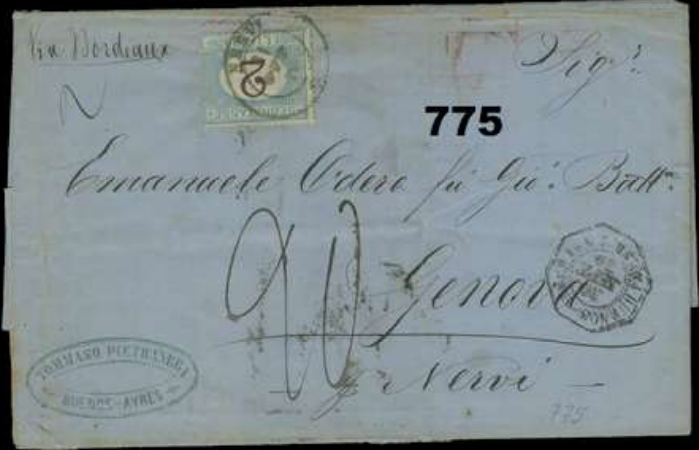 Via Bordeaux
NERVI
2
Sig.r
775
Emanuele Odero fu Gio. Batt.a
Genova
BUENOS
p Nervi
TOMMASO PIETRANERA
BUENOS-AYRES
775